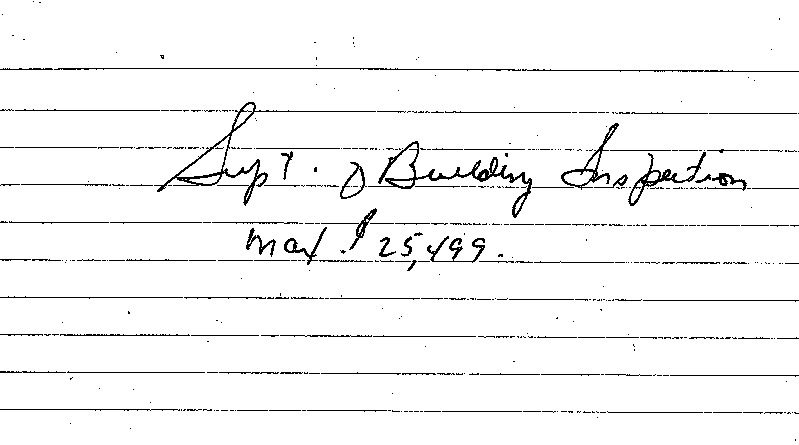 Supt. of Building Inspection
Max. $25,499.